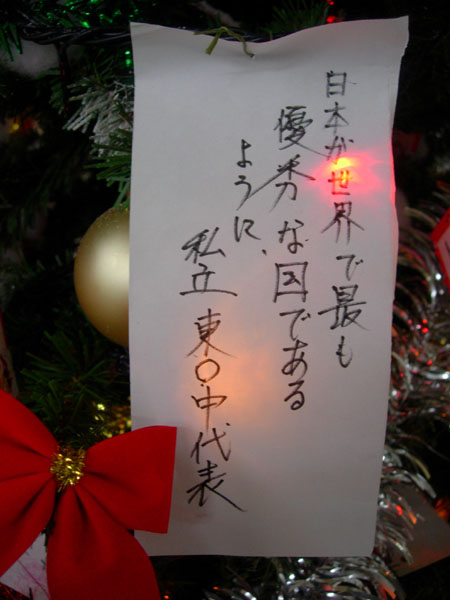 日本が世界で最も
優秀な国である
ように、
私立東〇中代表